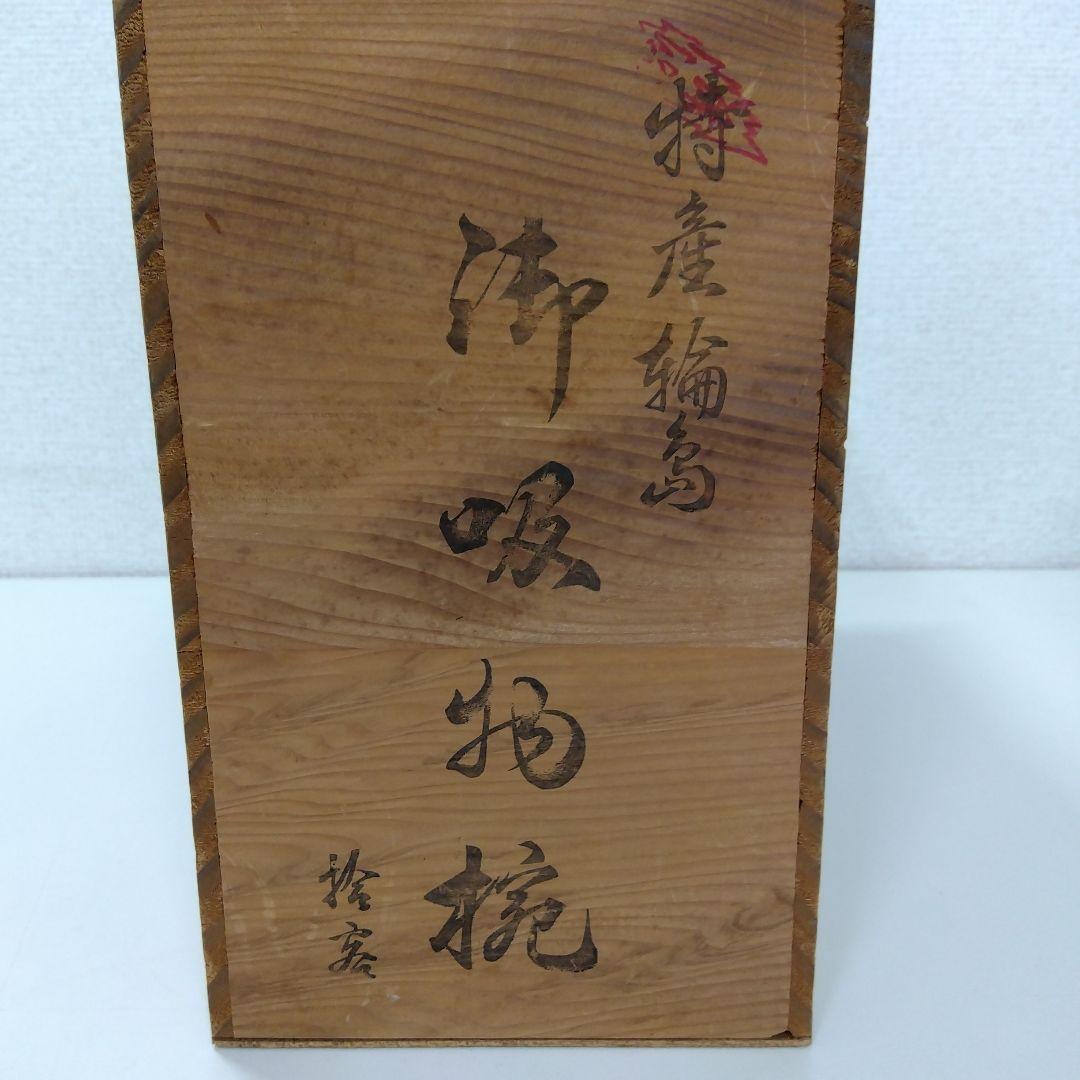 特産輪島
御吸物椀
拾客